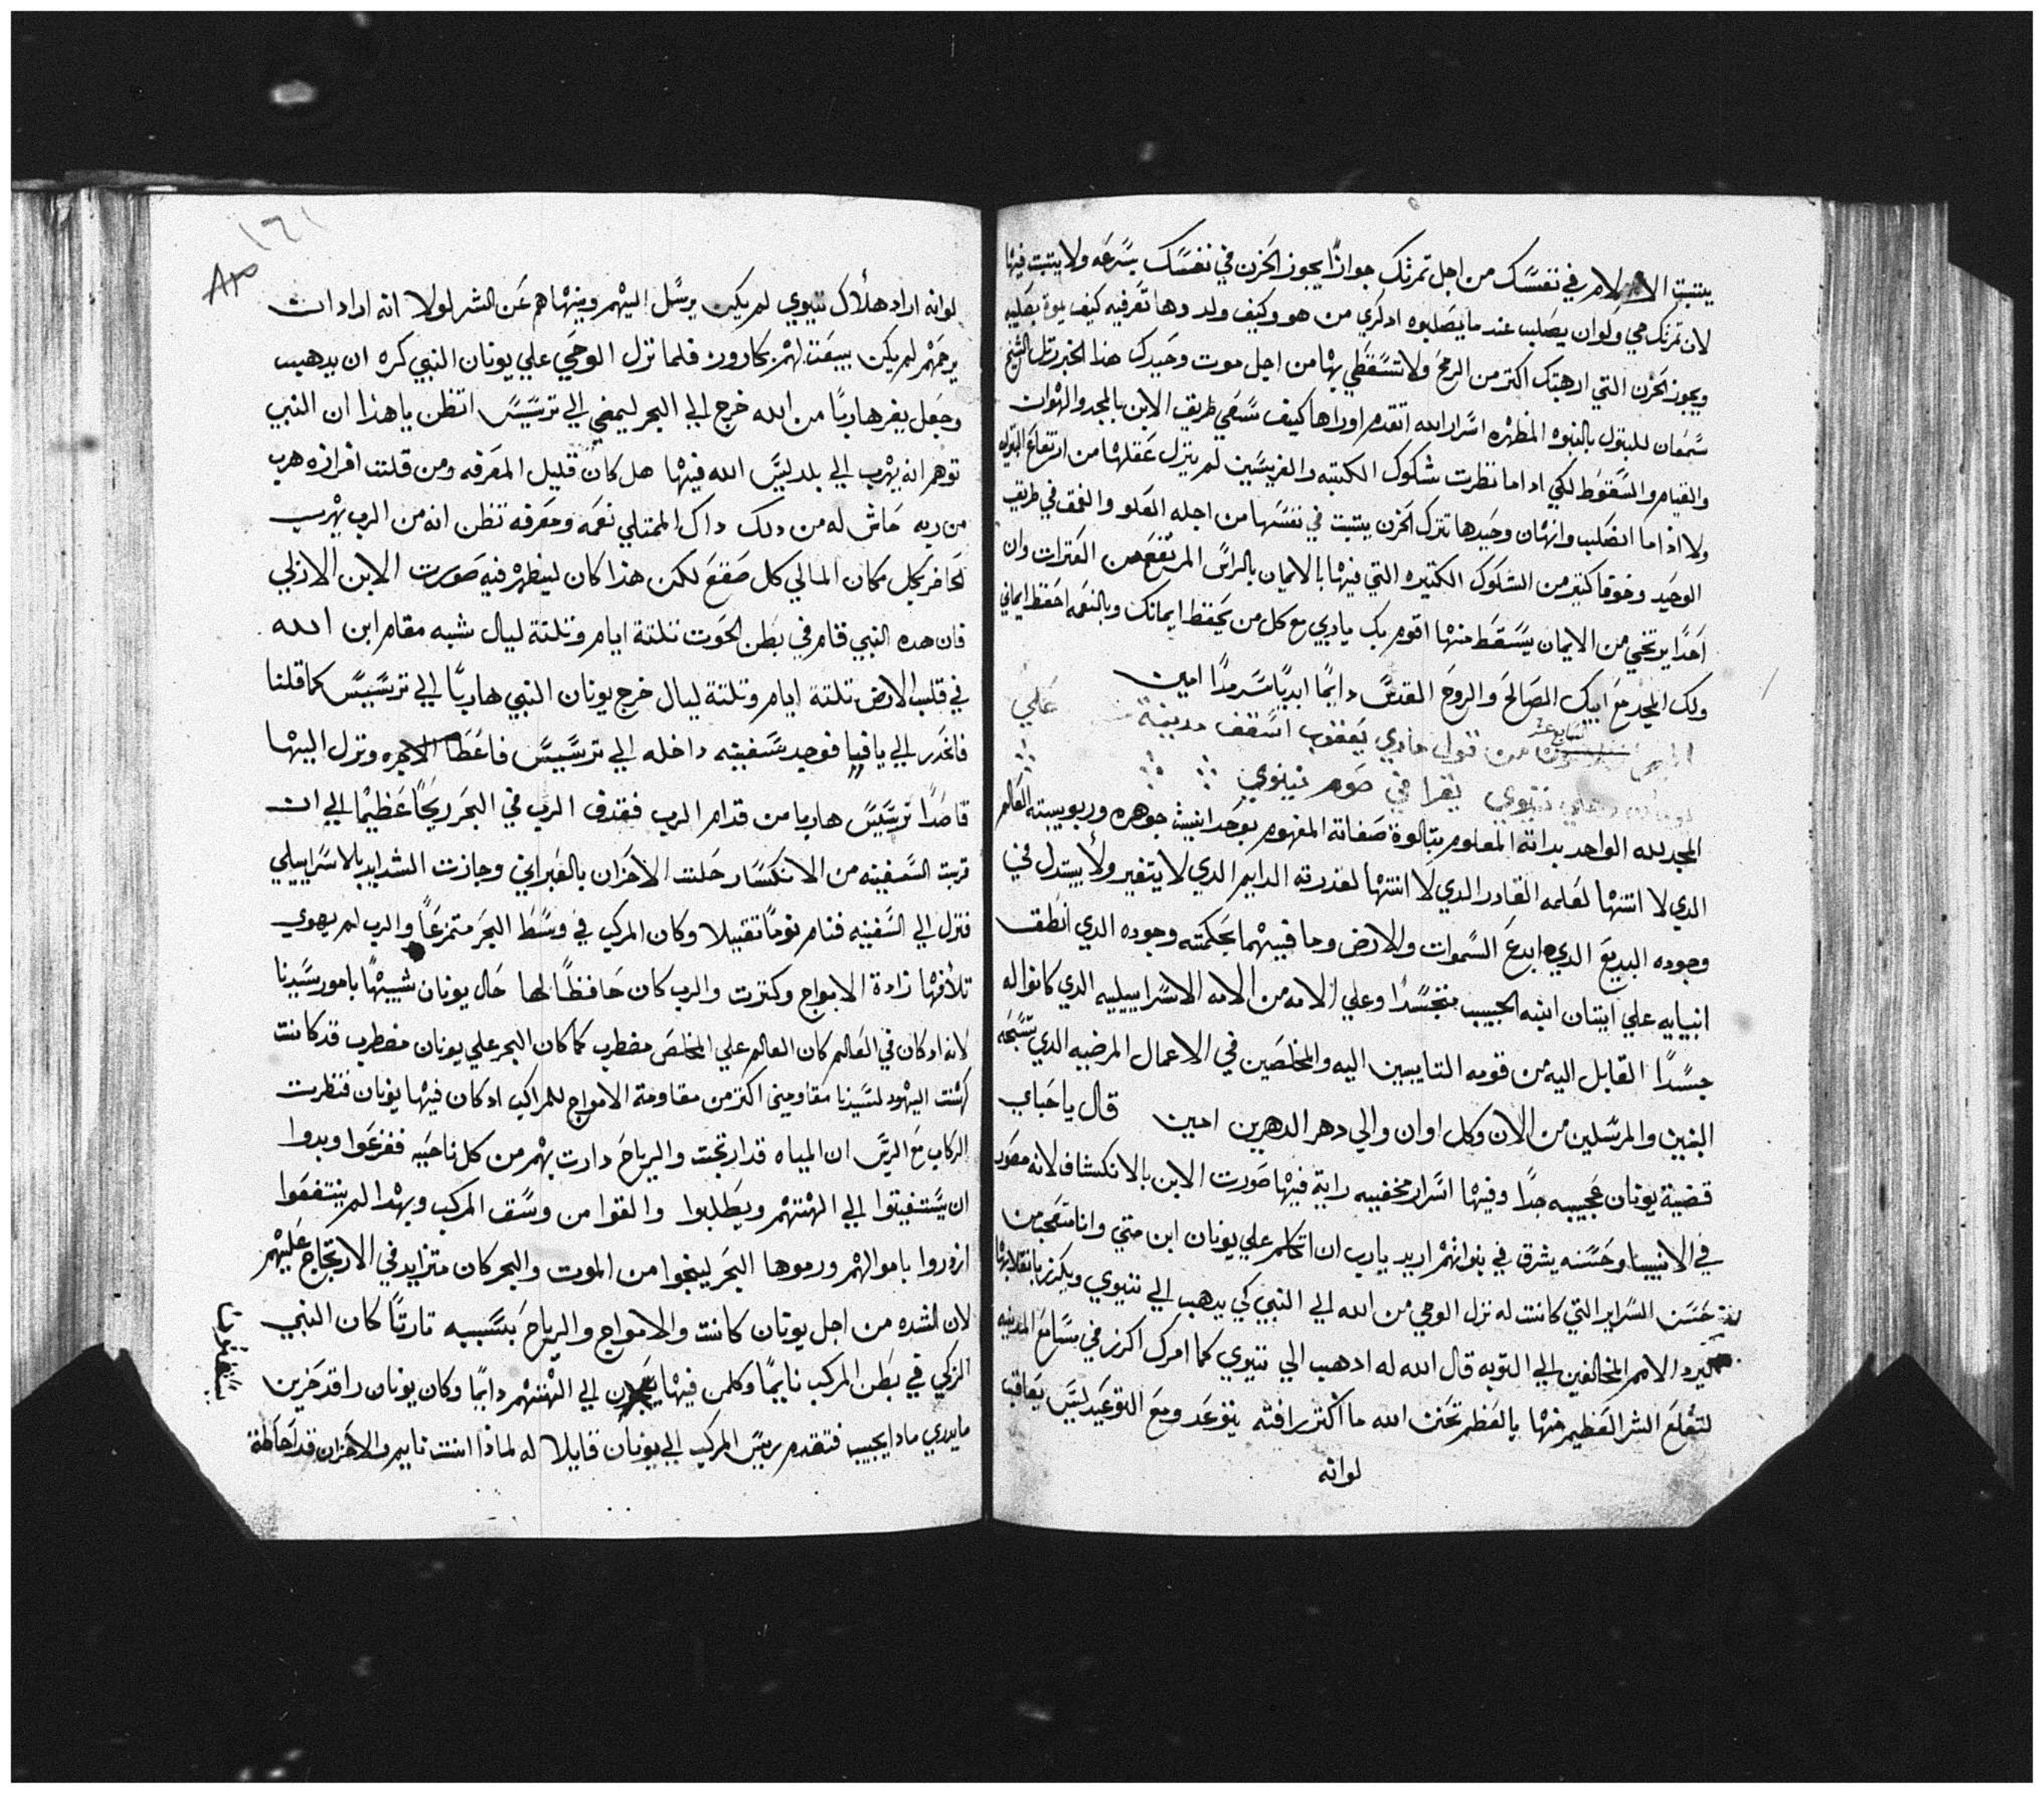 يتبت الالام في نفسك من اجل تمرتك جوازًا يجوز الحزن في نفسك بسرعه ولا يتبت فيها
لان تمرتك حي ولو ان يصلب عندما يصلبوه ادكري من هو وكيف ولد وها تعرفيه كيف يموت بصليبه
ويجوز الحزن التي ارهبتك اكتر من الرمح ولا تسقطي بها من اجل موت وحيدك هذا الخبر رتل الشيخ
سمعان للبتول بالنبوه المظهره اسرار الله اتقدم اوراها كيف سعي طريق الابن بالمجد والهوان
والقيام والسقوط لكي اداما نظرت شكوك الكتبه والفريسيين لم ينزل عقلها من ارتفاع البتوله
ولا اذا ما انصلب وانهان وحيدها تترك الحزن يتبت في نفسها من اجله العلو والعمق في طريق
الوحيد وخوفا كتير من الشكوك الكتيره التي فيها بالايمان بالراس المرتفع من العترات وان
احدًا يرتخي من الايمان يسقط منها اقوم بك ياربي مع كل من يحفظ ايمانك وبالنعمه احفظ ايماني
ولك المجد مع ابيك الصالح والروح القدس دايمًا ابديًا سرمدًا امين
السابع عشر
الميمر من قول ماري يعقوب اسقف مدينة علي
نينوي يقرا في صوم نينوي
المجد لله الواحد بداته المعلوم بتالوت صفاته المفهوم بوحدانيت جوهره وربوبيته العالم
الدي لا انتها لعلمه القادر الدي لا انتها لقدرته الدايم الدي لا يتغير ولا يبتدل في
وجوده البديع الدي ابدع السموات والارض وما فيهما بحكمته وجوده الدي انطق
انبيايه علي اتيان ابنه الحبيب متجسدًا وعلي الامه من الامه الاسراييليه الدي كانوا له
جسدًا القابل اليه من قومه التايبين اليه والمخلصين في الاعمال المرضيه الدي تسبحه
النبيين والمرسلين من الان وكل اوان والي دهر الدهرين امين قال يا احباي
قضية يونان عجيبه جدًا وفيها اسرار مخفيه راية فيها صورت الابن بالانكشاف لانه مصور
في الانبيا وحسنه يشرق في بنواتهم اريد يارب ان اتكلم علي يونان ابن متي وانا متعجب من
حسن السراير التي كانت له نزل الوحي من الله الي النبي كي يدهب الي نينوي ويكرز بانقلابها
يرد الامم المخالفين الي التوبه قال الله له ادهب الي نينوي كما امرك اكرز في مسامع المدينه
لتقلع الشر العظيم منها يالعظم تحنن الله ما اكتر رافته يتوعد ومع التوعيد ليس يعاقب
لوانه
١٦١
٨٣
لوانه اراد هلاك نينوي لم يكن يرسل اليهم وينهاهم عن الشر لولا انه اراد ان
يرحمهم لم يكن يبعت لهم بكارون فلما نزل الوحي علي يونان النبي كره ان يدهب
وجعل يفر هاربًا من الله خرج الي البحر ليمضي الي ترسيس اتظن ياهذا ان النبي
توهم انه يهرب الي بلد ليس الله فيها هل كان قليل المعرفه ومن قلت افرازه هرب
من ربه حاش له من دلك داك الممتلي نعمه ومعرفه تظن انه من الرب يهرب
الحاضر بكل مكان المالي كل صقع لكن هذا كان ليظهر فيه صورت الابن الازلي
فان هده النبي قام في بطن الحوت تلتة ايام وتلتة ليال شبه مقام ابن الله
في قلب الارض تلتة ايام وتلتة ليال خرج يونان النبي هاربًا الي ترسيس كما قلنا
فانحدر الي يافيا فوجد سفينه داخله الي ترسيس فاعطا الاجره ونزل اليها
قاصدًا ترسيس هاربا من قدام الرب فقدف الرب في البحر ريحًا عظيمًا الي ان
قربت السفينه من الانكسار حلت الاحزان بالعبراني وجازت الشدايد بالاسراييلي
فنزل الي السفينه فنام نومًا تقيلا وكان المركب في وسط البحر متمزعًا والرب لم يهوي
تلافها زادة الامواج وكترت والرب كان حافظًا لها حال يونان شبيهًا بامور سيدنا
لانه اد كان في العالم كان العالم علي المخلص مضطرب كما كان البحر علي يونان مضطرب قد كانت
كهنت اليهود لسيدنا مقاومين اكتر من مقاومة الامواج للمراكب اد كان فيها يونان فنظرت
الركاب مع الريس ان المياه قد ارتجت والرياح دارت بهم من كل ناحيه ففزعوا وبدوا
ان يستغيتوا الي الهتهم ويطلبوا والقوا من وسق المركب وبهدا لم ينتفعوا
ازدروا باموالهم ورموها البحر لينجوا من الموت والبحر كان متزايد في الارتجاج عليهم
لان الشده من اجل يونان كانت والامواج والرياح بسببه تارتًا كان النبي
الزكي في بطن المركب نايمًا وكلمن فيها الي الهتهم دايمًا وكان يونان راقد حزين
مايدري مادا يجيب فتقدم ريس المركب الي يونان قايلا له لماذا انت نايم والاحزان قد احاطة